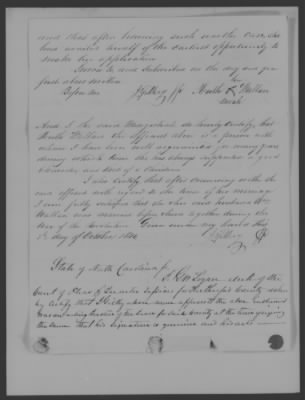 and that after becoming such matter
has availed herself of the earliest opportunity to
make her application
Sworn to and Subscribed on the day and year
first above written
Before me
Martha X Wallace
mark
And I the said Magistrate do hereby Certify, that
Martha Wallace the affiant above is a person with
whom I have been well acquainted for many years
during which time she has always supported a good
character and that of a Christian
I also Certify that after conversing with the
said affiant with regard to the time of her marriage
I am fully satisfied that she and her said husband Wm
Wallace was married before them together during the
War of the Revolution. Given under my hand this
day of October 1844
State of North Carolina
Logan clerk of the
Court of Pleas & Quarter Sessions for Rutherford County do here
by Certify that J. whose name appears to the above
was an acting Justice of the Peace for said County at the time of signing
the same that his signature is genuine and